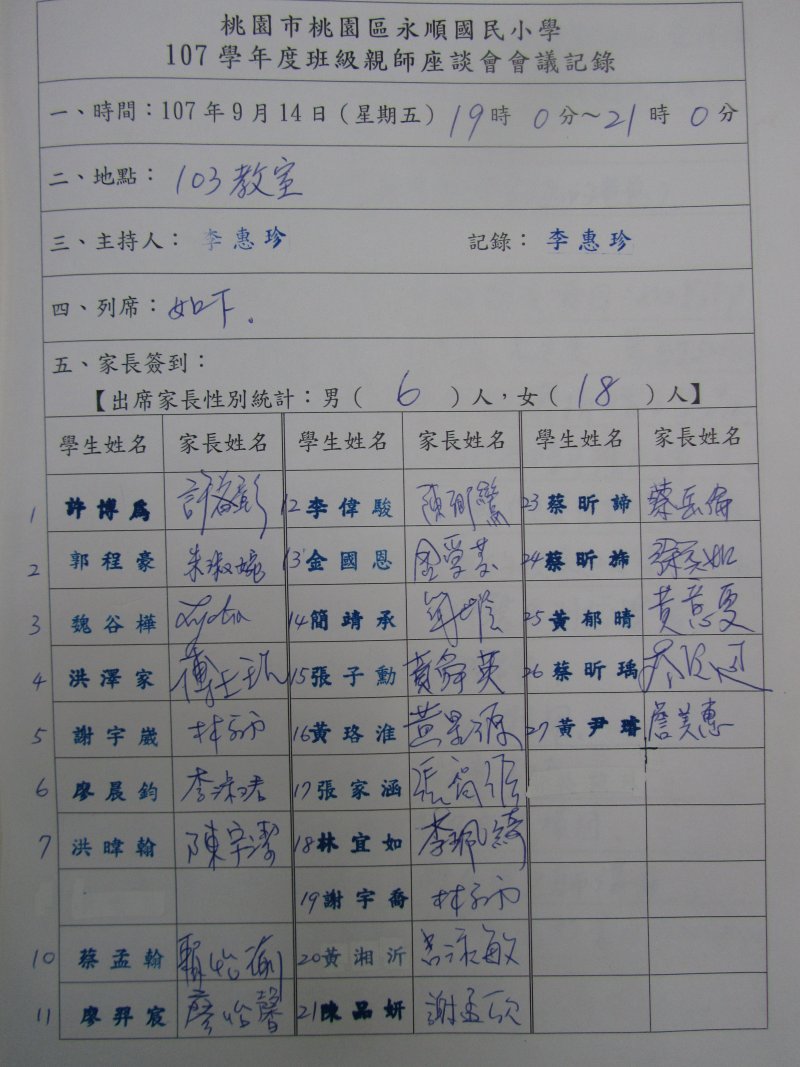 桃園市桃園區永順國民小學
107學年度班級親師座談會會議記錄
一、時間：107年9月14日（星期五）19時 0分～21時 0分
二、地點： 103教室
三、主持人： 李惠珍 記錄： 李惠珍
四、列席： 如下.
五、家長簽到：
【出席家長性別統計：男（ 6 ）人，女（ 18 ）人】
學生姓名 家長姓名 學生姓名 家長姓名 學生姓名 家長姓名
1 許博為 12 李偉駿 23 蔡昕諦 蔡岳倫
2 郭程豪 朱淑婉 13 金國恩 24 蔡昕旆
3 魏谷樺 14 簡靖承 25 黃郁晴 黃意雯
4 洪澤家 15 張子勳 黃舜英 26 蔡昕瑀
5 謝宇崴 16 黃珞淮 黃景源 27 黃尹璿 詹美惠
6 廖晨鈞 李淑君 17 張家涵
7 洪暐翰 陳宇潔 18 林宜如 李珮綺
19 謝宇喬
10 蔡孟翰 20 黃湘沂
11 廖羿宸 廖怡馨 21 陳品妍 謝孟欣